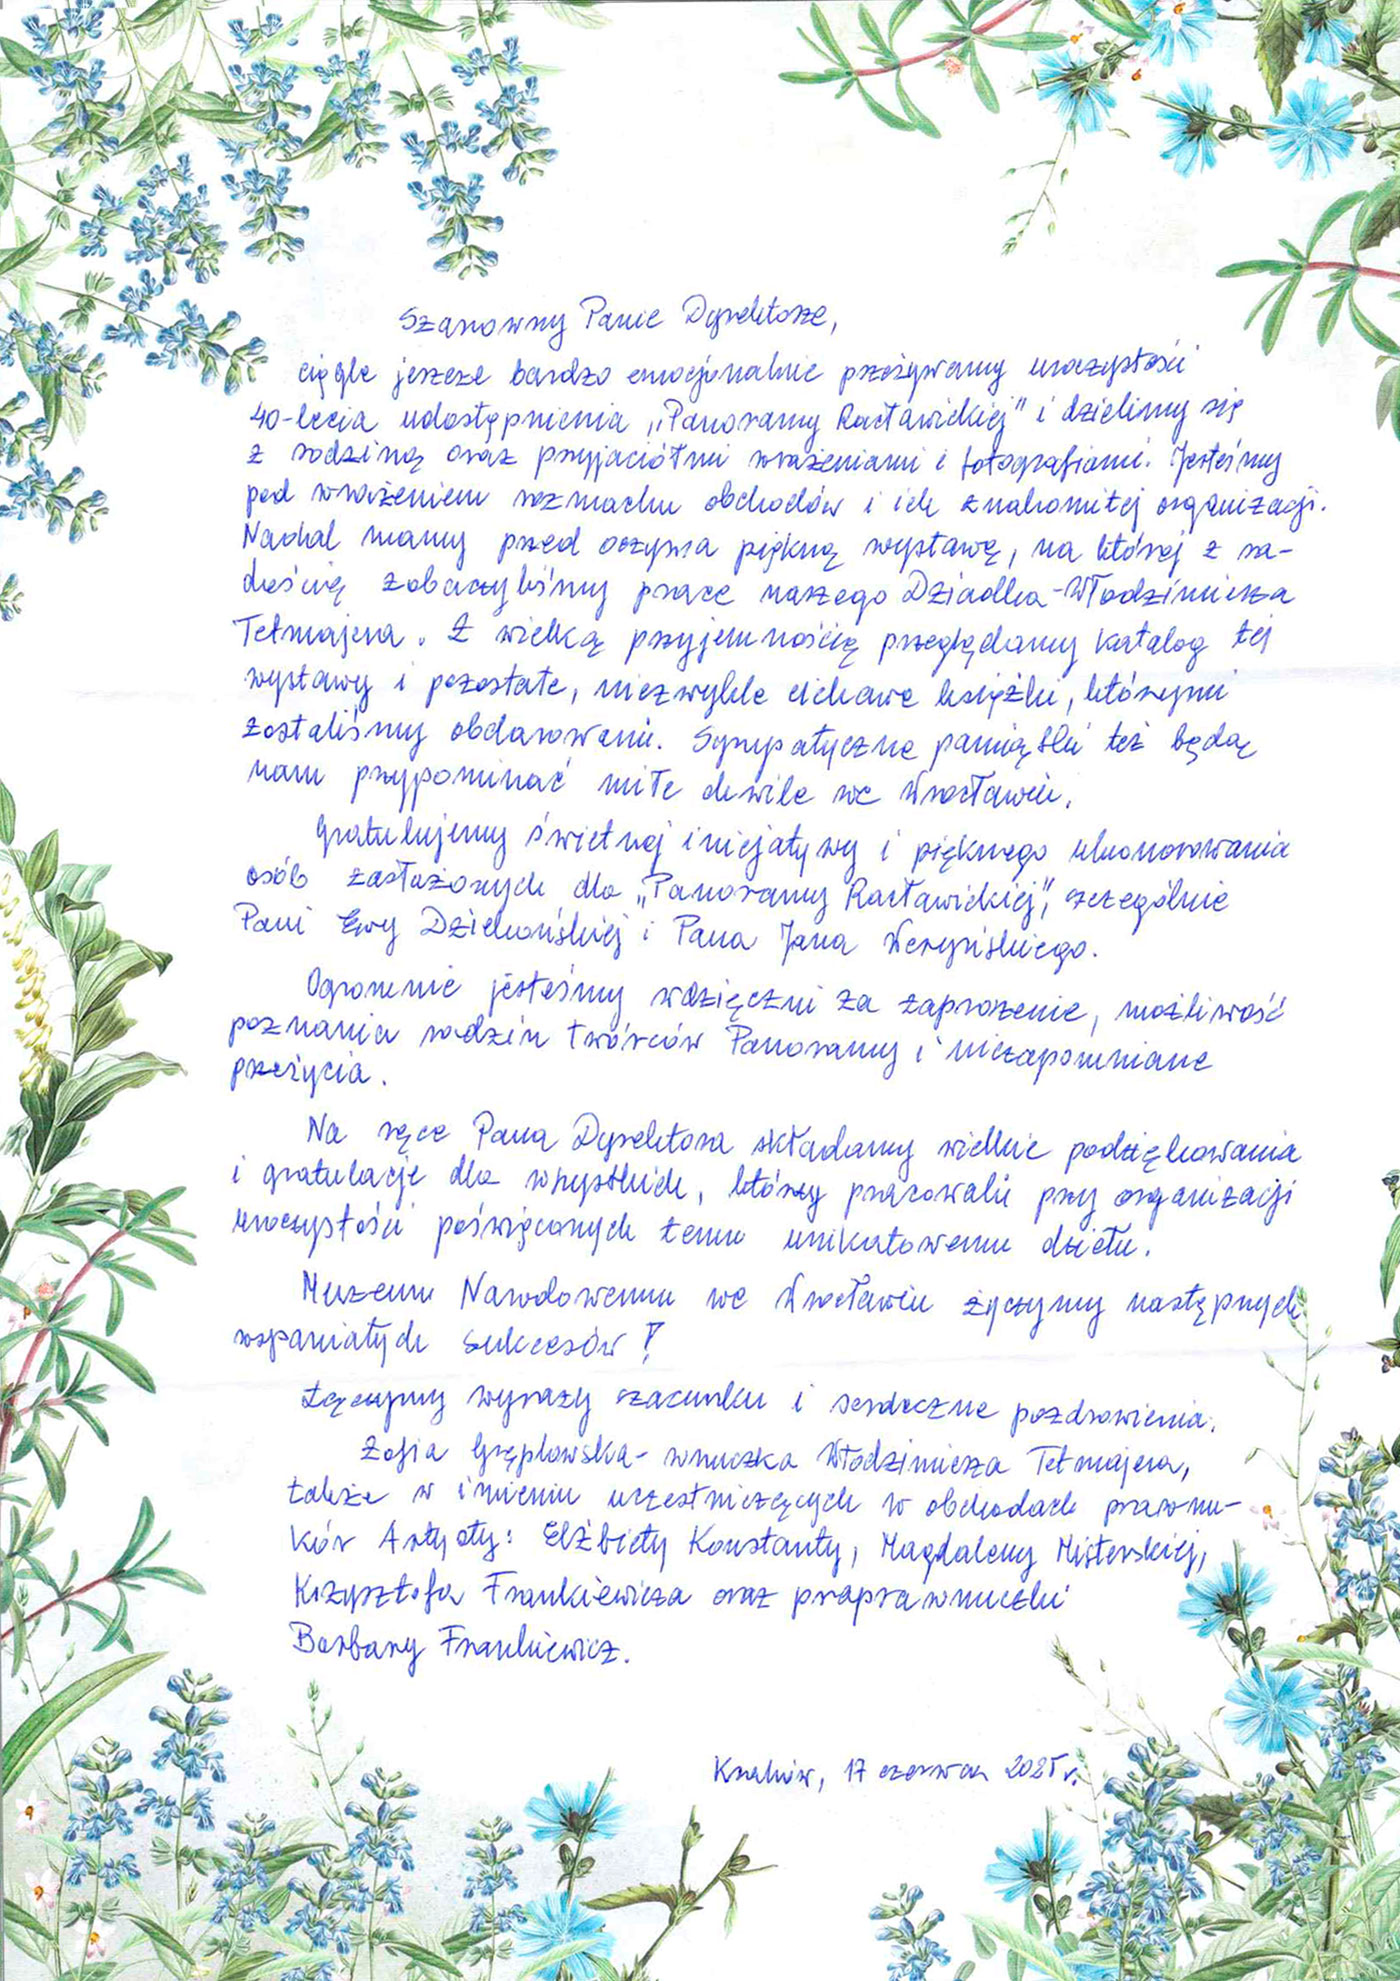 Szanowny Panie Dyrektorze,
ciągle jeszcze bardzo emocjonalnie przeżywamy uroczystości
40-lecia udostępnienia „Panoramy Racławickiej" i dzielimy się
z rodziną oraz przyjaciółmi wrażeniami i fotografiami. Jesteśmy
pod wrażeniem rozmachu obchodów i ich znakomitej organizacji.
Nadal mamy przed oczyma piękną wystawę, na której z ra-
dością zobaczyliśmy prace naszego Dziadka - Włodzimierza
Tetmajera. Z wielką przyjemnością przeglądamy katalog tej
wystawy i pozostałe, niezwykle ciekawe książki, którymi
zostaliśmy obdarowani. Sympatyczne pamiątki też będą
nam przypominać miłe chwile we Wrocławiu.
Gratulujemy świetnej inicjatywy i pięknego uhonorowania
osób zasłużonych dla „Panoramy Racławickiej", szczególnie
Pani Ewy Dziekońskiej i Pana Jana Weryńskiego.
Ogromnie jesteśmy wdzięczni za zaproszenie, możliwość
poznania rodzin twórców Panoramy i niezapomniane
przeżycia.
Na ręce Pana Dyrektora składamy wielkie podziękowania
i gratulacje dla wszystkich, którzy pracowali przy organizacji
uroczystości poświęconych temu unikatowemu dziełu.
Muzeum Narodowemu we Wrocławiu życzymy następnych
wspaniałych sukcesów!
Łączymy wyrazy szacunku i serdeczne pozdrowienia.
Zofia Gręplowska - wnuczka Włodzimierza Tetmajera,
także w imieniu uczestniczących w obchodach prawnu-
ków Artysty: Elżbiety Konstanty, Magdaleny Misterskiej,
Krzysztofa Frankiewicza oraz praprawnuczki
Barbary Frankiewicz.
Kraków, 17 czerwca 2025 r.